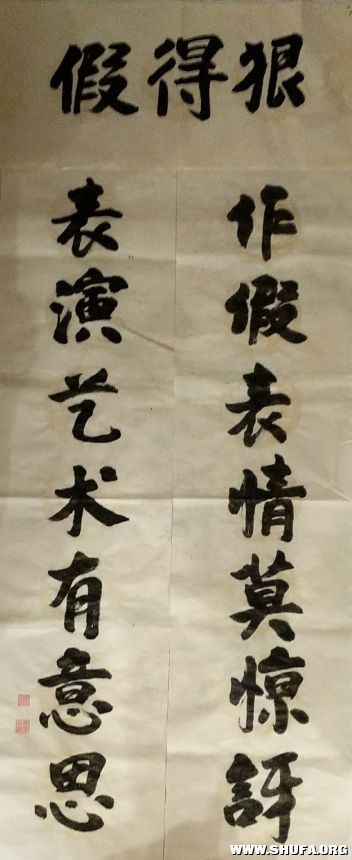 假得狠
作假表情莫惊訝
表演艺术有意思
WWW.SHUFA.ORG